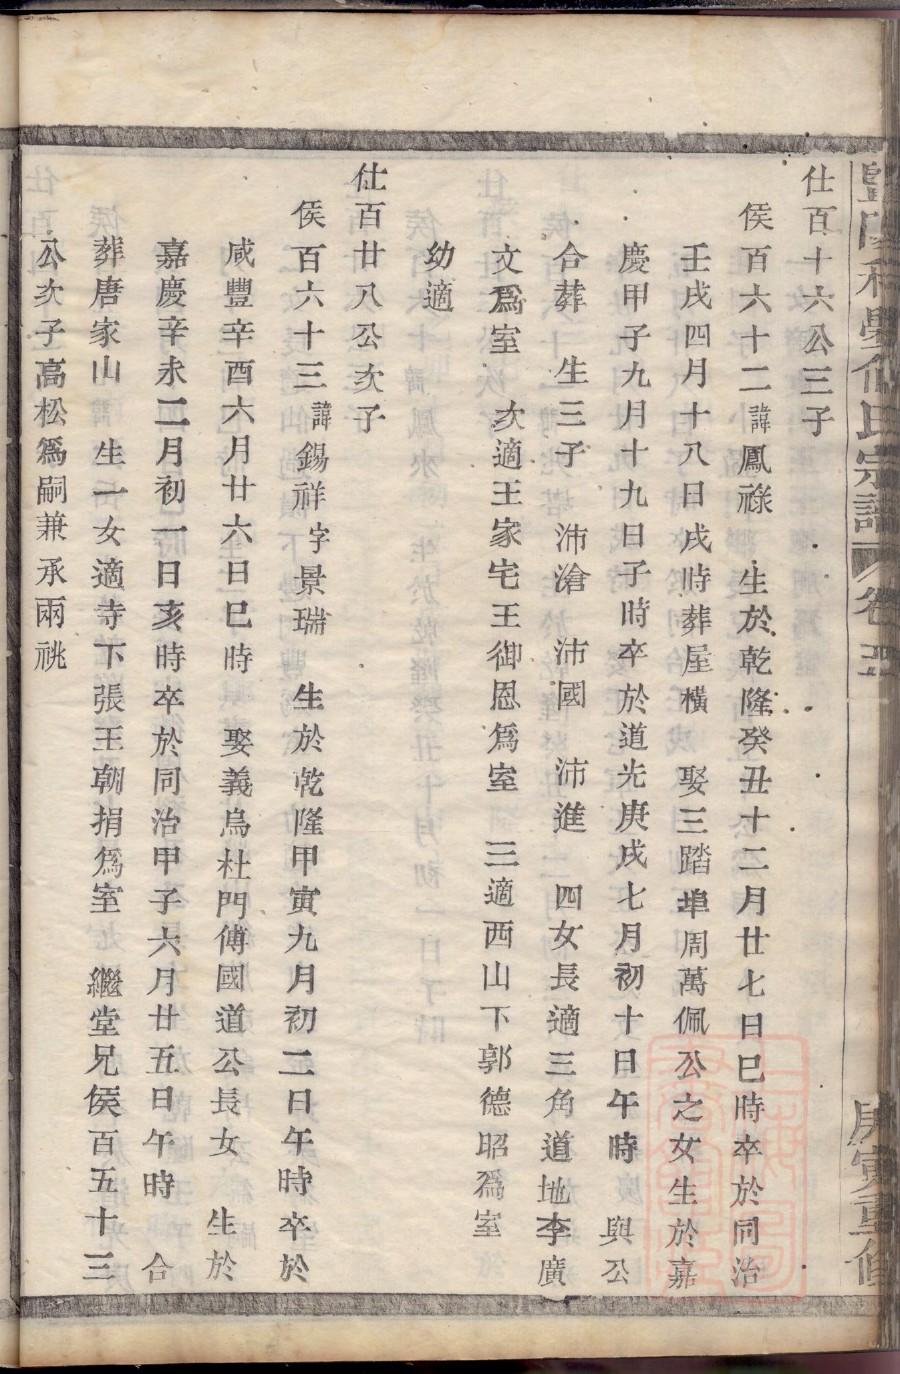 仕百十六公三子
侯百六十二諱鳳祿 生於乾隆癸丑十二月廿七日巳時卒於同治
壬戌四月十八日戌時葬屋橫 娶三踏埠周萬佩公之女生於嘉
慶甲子九月十九日子時卒於道光庚戌七月初十日午時 與公
合葬 生三子 沛滄 沛國 沛進 四女長適三角道地李廣
文爲室 次適王家宅王御恩爲室 三適西山下郭德昭爲室
幼適
仕百廿八公次子
侯百六十三諱錫祥字景瑞 生於乾隆甲寅九月初二日午時卒於
咸豐辛酉六月廿六日巳時 娶義烏杜門傅國道公長女 生於
嘉慶辛未二月初一日亥時卒於同治甲子六月廿五日午時 合
葬唐家山 生一女適寺下張王朝捐爲室 繼堂兄侯百五十三
公次子高松爲嗣兼承兩祧
氏宗譜 卷五 庚寅重修